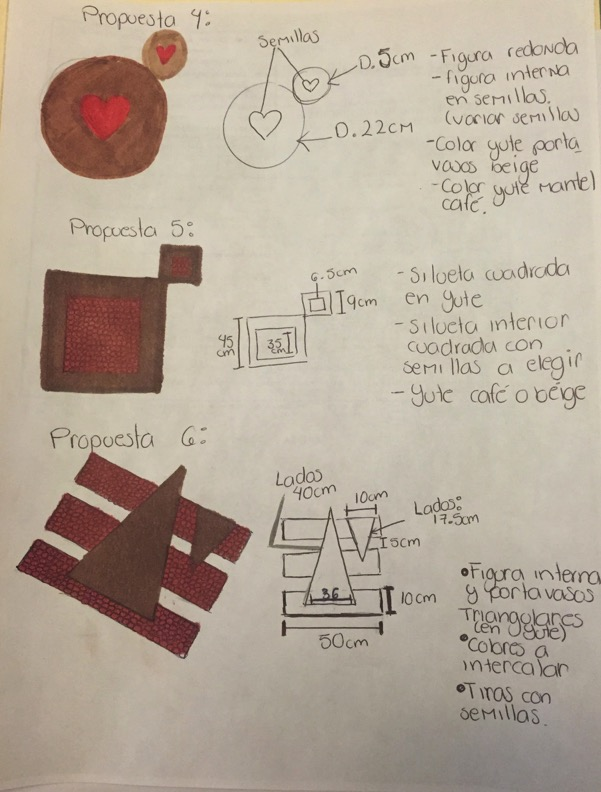 Propuesta 4:
Semillas
D.5cm
D.22cm
-Figura redonda
-figura interna
en semillas.
(variar semillas
-Color yute porta
vasos beige
-Color yute mantel
café.
Propuesta 5:
6.5cm
9cm
45
cm
35
cm
-Silueta cuadrada
en yute
-Silueta interior
cuadrada con
semillas a elegir
-Yute café o beige
Propuesta 6:
Lados
40cm
10cm
Lados:
17.5cm
5cm
36
10cm
50cm
•Figura interna
y portavasos
Triangulares
(en yute)
•Colores a
intercalar
•Tiras con
semillas.